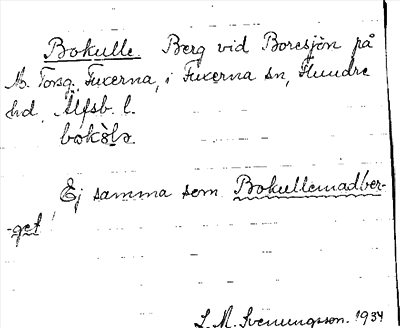 Bokulle. Berg vid Boresjön på
Torsg. Fuxerna, i Fuxerna sn, Flundre
hd, Älfsb. l.
Ej samma som Bokullemadber-
-get!
L. M. Svenungsson. 1934